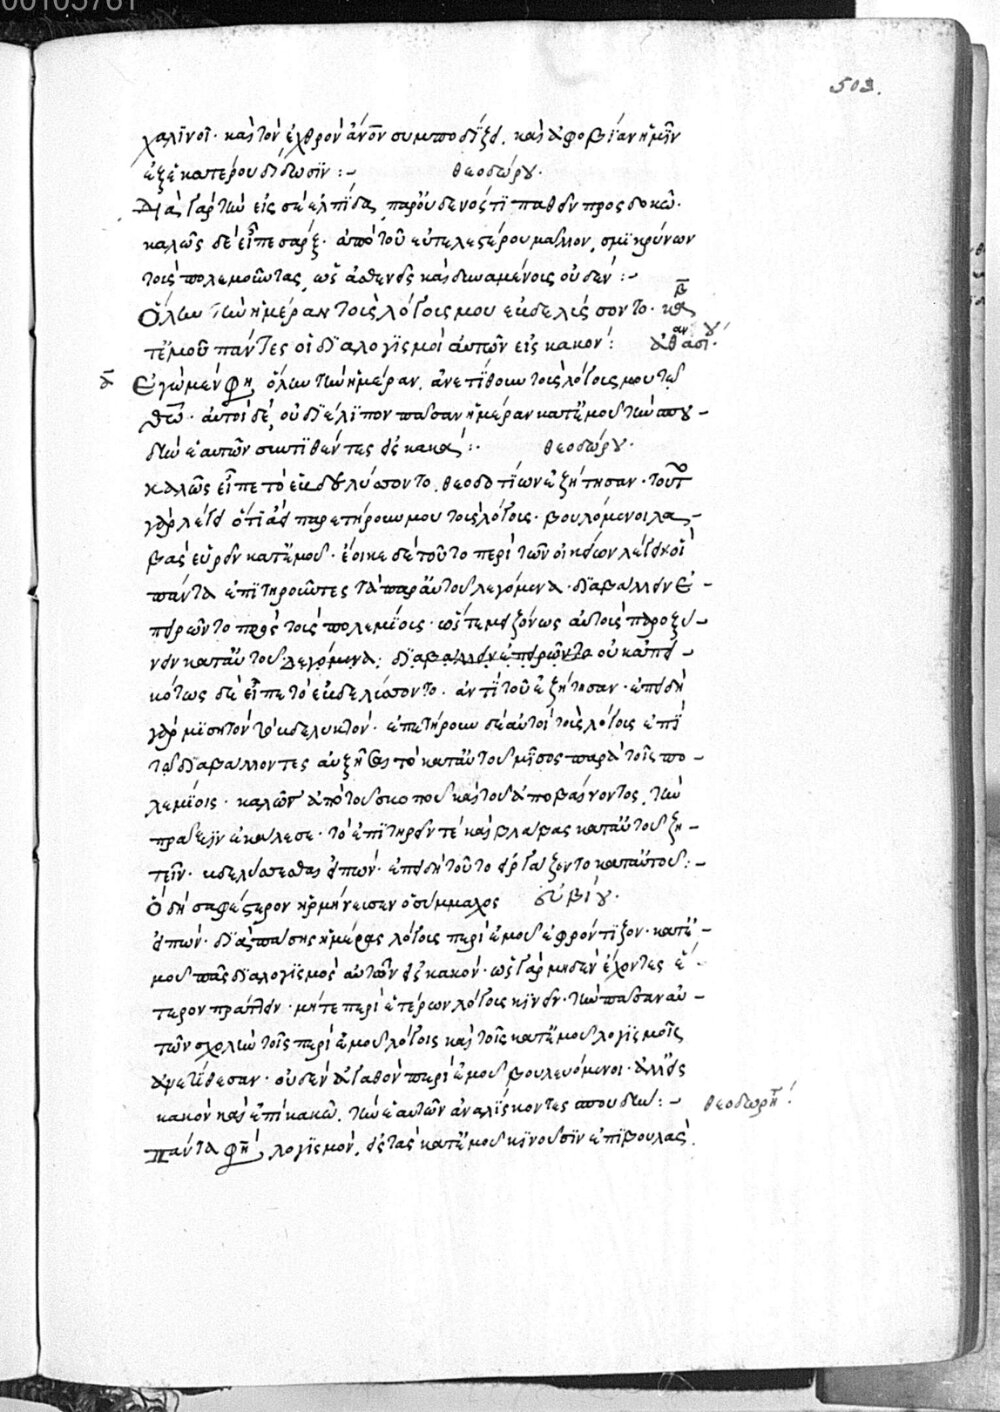 503.
χαλινοῖ· καὶ τὸν ἐχθρὸν ἄνον συμποδίζει. καὶ ἀφοβίαν ἡμῖν
ἐξ ἑκατέρου δίδωσιν :- θεοδώρου.
Διὰ γὰρ τὴν εἰς σὲ ἐλπίδα, παρ' οὐδενός τι παθεῖν προσδοκῶ.
καλῶς δὲ εἶπε σάρξ· ἀπὸ τοῦ εὐτελεστέρου μᾶλλον, σμικρύνων
τοὺς πολεμοῦντας, ὡς ἀσθενεῖς καὶ δυναμένους οὐδέν :-
Ὅλην τὴν ἡμέραν τοὺς λόγους μου ἐβδελύσσοντο. κα
τ' ἐμοῦ πάντες οἱ διαλογισμοὶ αὐτῶν εἰς κακόν : ἀθανασίου.
Ἐγὼ μὲν φη, ὅλην τὴν ἡμέραν, ἀνετίθουν τοὺς λόγους μου τῷ
θεῶ. αὐτοὶ δὲ, οὐ διέλιπον πᾶσαν ἡμέραν κατ' ἐμοῦ τὴν σπου-
δὴν ἑαυτῶν συντιθέντες εἰς κακά :. θεοδώρου.
καλῶς εἶπε τὸ ἐβδελύσσοντο. θεοδοτίων ἐζήτησαν. τοῦτο
γὰρ λέγει ὅτι ἀεὶ παρετήρουν μου τοὺς λόγους. βουλόμενοι λα-
βὰς εὑρεῖν κατ' ἐμοῦ. ἔοικε δὲ τοῦτο περὶ τῶν οἰκείων λέγειν οἳ
πάντα ἐπιτηροῦντες τὰ παρ' αὐτοῦ λεγόμενα. διαβάλλειν ἐ-
πειρῶντο πρὸς τοὺς πολεμίους. ὥστε μειζόνως αὐτοὺς παροξύ-
νειν κατ' αὐτοῦ λεγόμενα. διαβάλλειν ἐπειρῶντο οὐκ ἀπει-
κότως δὲ εἶπε τὸ ἐβδελύσσοντο. ἀντὶ τοῦ ἐζήτησαν. ἐπειδὴ
γὰρ μισητὸν τὸ βδελυκτόν. ἐπετήρουν δὲ αὐτοὶ τοὺς λόγους ἐπὶ
τῷ διαβάλλοντες αὐξῆσαι τὸ κατ' αὐτοῦ μῖσος παρὰ τοῖς πο-
λεμίοις. καλῶς ἀπὸ τοῦ σκοποῦ καὶ τοῦ ἀποβαίνοντος, τὴν
πρᾶξιν ἐκάλεσε. τὸ ἐπιτηρεῖν τε καὶ βλάβας κατ' αὐτοῦ ζη-
τεῖν. βδελύσσεσθαι εἰπών. ἐπειδὴ τοῦτο εἰργάζοντο κατ' αὐτοῦ :-
Ὃ δὴ σαφέστερον ἡρμήνευσεν ὁ σύμμαχος εὐσεβίου.
εἰπών. διὰ πάσης ἡμέρας λόγους περὶ ἐμοῦ ἐφρόντιζον. κατ' ἐ-
μοῦ πᾶς διαλογισμὸς αὐτῶν εἰς κακόν. ὡς γὰρ μηδὲν ἔχοντες ἕ-
τερον πράττειν. μήτε περὶ ἑτέρων λόγους κινεῖν. τὴν πᾶσαν αὐ-
τῶν σχολὴν τοῖς περὶ ἐμοῦ λόγοις καὶ τοῖς κατ' ἐμοῦ λογισμοῖς
ἀνετίθεσαν. οὐδὲν ἀγαθὸν περὶ ἐμοῦ βουλευόμενοι. ἀλλ' εἰς
κακὸν καὶ ἐπὶ κακῶ. τὴν ἑαυτῶν ἀναλίσκοντες σπουδήν :- θεοδωρήτου.
Πάντα φησὶ, λογισμὸν, εἰς τὰς κατ' ἐμοῦ κινοῦσιν ἐπιβουλάς.